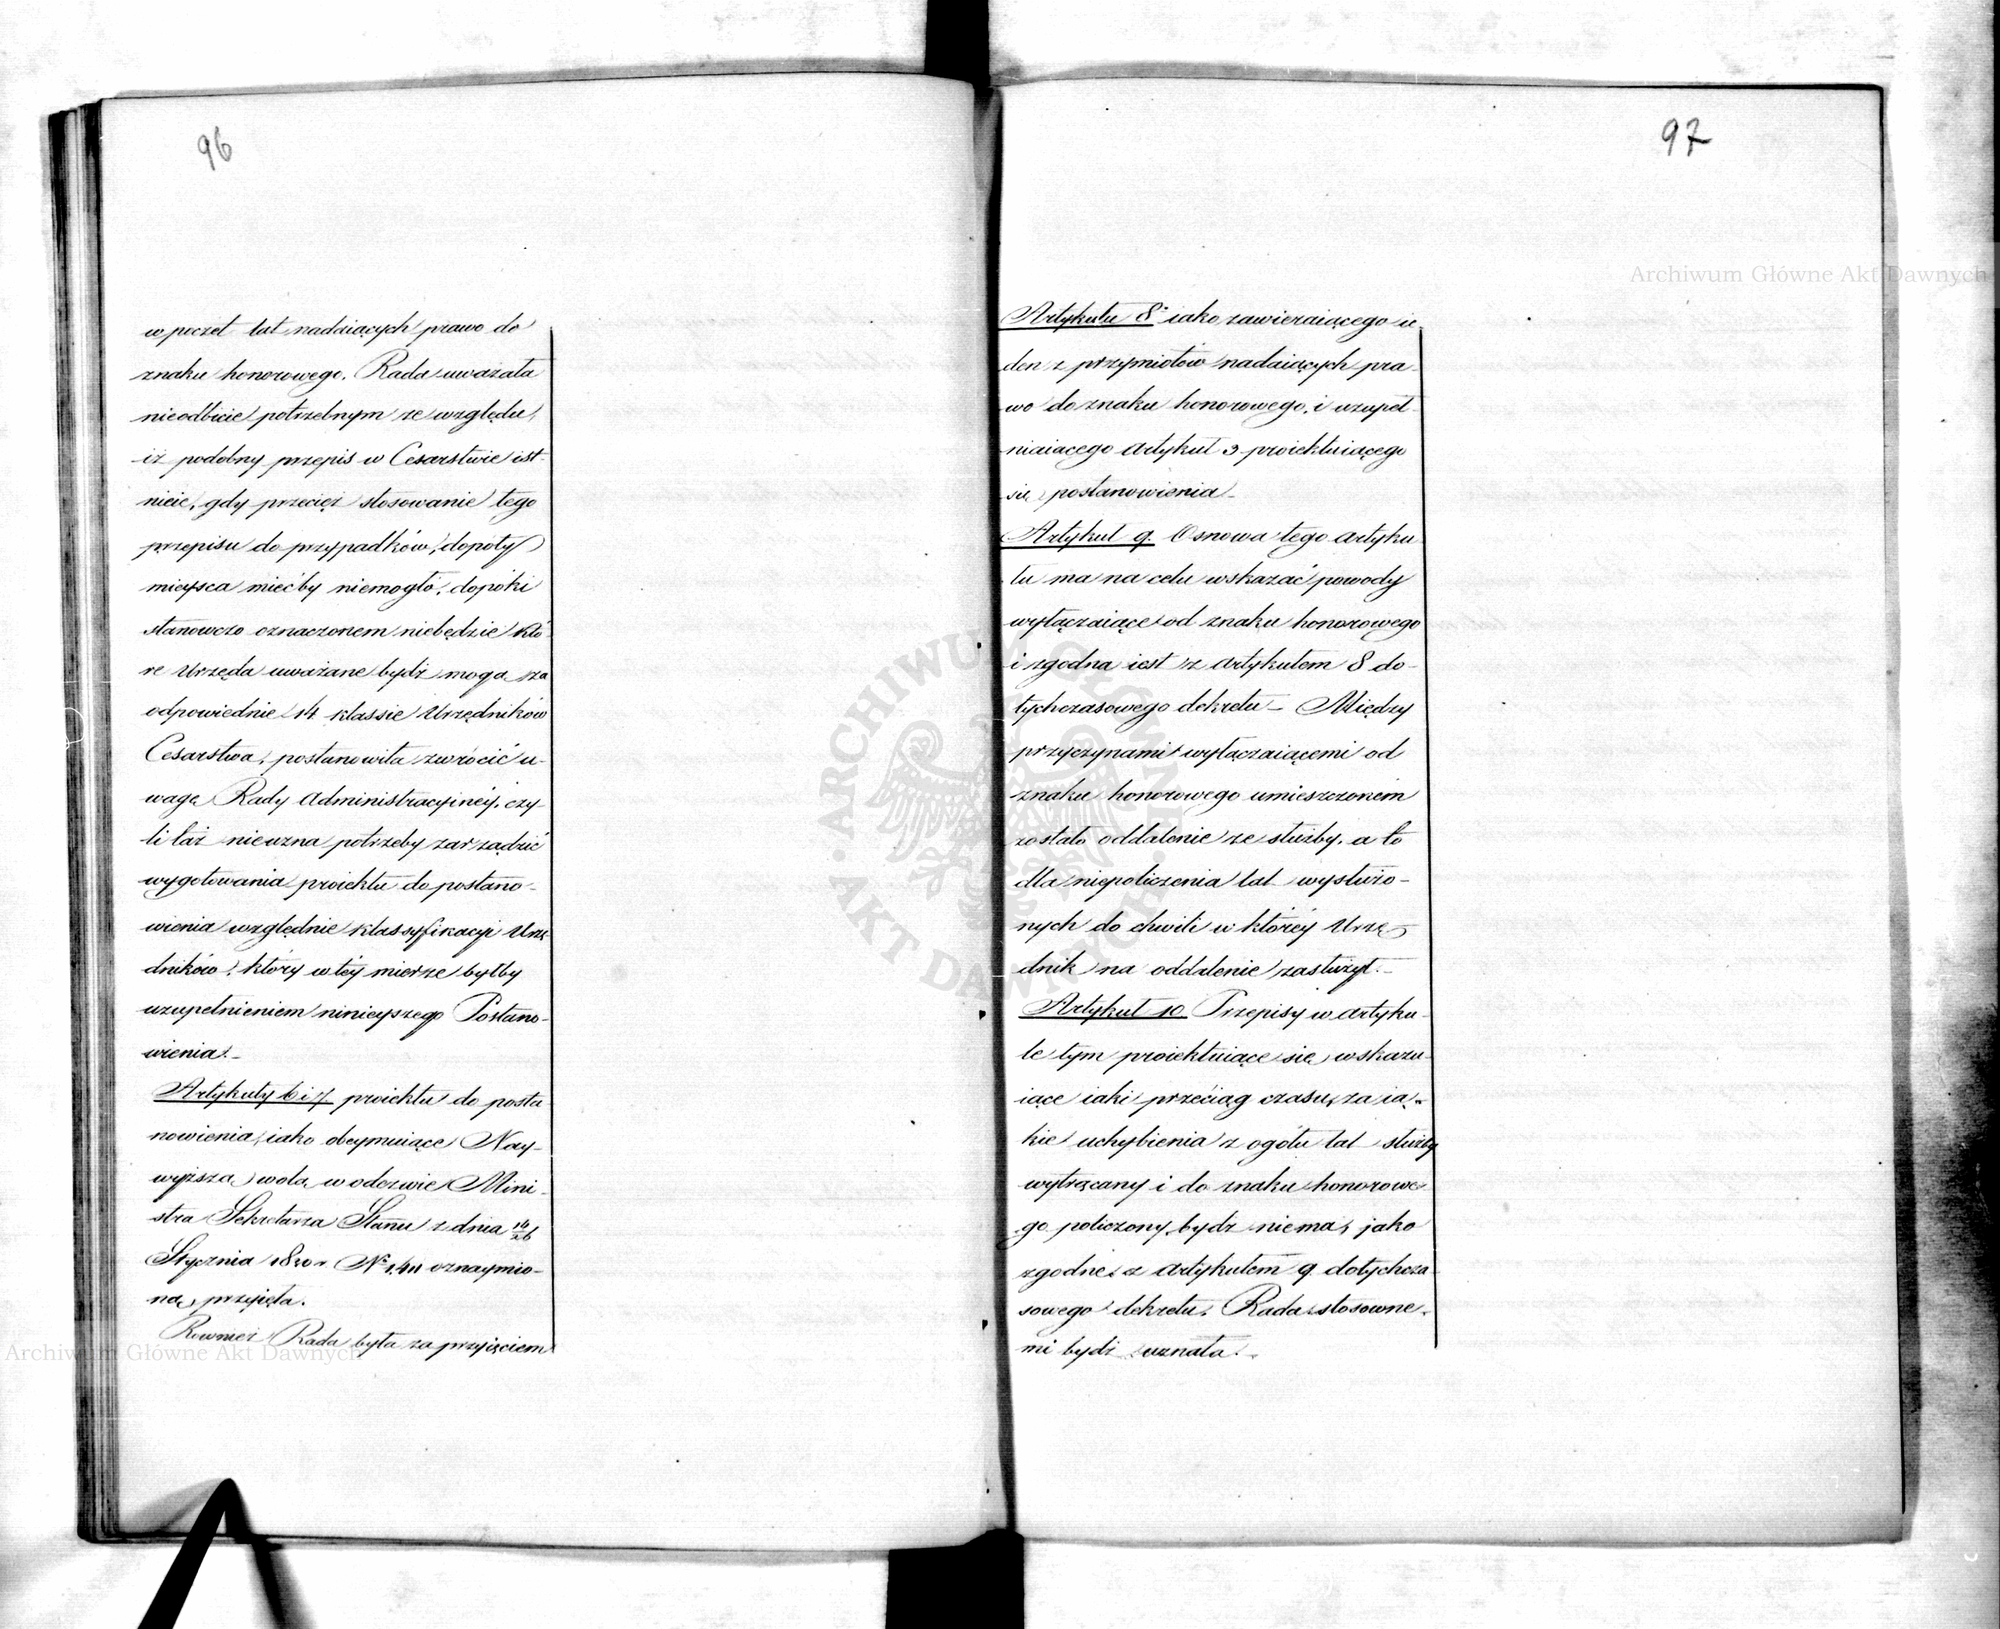 96
w poczet lat nadaiących prawo do
znaku honorowego. Rada uważała
nieodbicie potrzebnym ze względu,
iż podobny przepis w Cesarstwie ist-
nieie, gdy przecież stosowanie tego
przepisu do przypadków, dopóty
mieysca miećby niemogło, dopóki
stanowczo oznaczonem niebędzie któ-
re Urzęda uważane bydź mogą za
odpowiednie 14 klassie Urzędników
Cesarstwa, postanowiła zwrócić u-
wagę Rady Administracyiney, czy-
li taż nieuzna potrzeby zarządzić
wygotowania proiektu do postano-
wienia względnie klassyfikacyi Urzę-
dników, który w téy mierze byłby
uzupełnieniem ninieyszego Postano-
wienia.-
Artykuły 6 i 7. proiektu do posta
nowienia, iako obeymuiące Nay-
wyższą wolą w odezwie Mini-
stra Sekretarza Stanu z dnia 14/26
Stycznia 1830 r. No 1,411 oznaymio-
ną, przyięła.
Rownież Rada była za przyięciem
97
Artykułu 8o iako zawieraiącego ie-
den z przymiotów nadaiących pra-
wo do znaku honorowego, i uzupeł-
niaiącego artykuł 3 proiektuiącego
się postanowienia.
Artykuł 9. Osnowa tego artyku
łu ma na celu wskazać powody
wyłączaiące od znaku honorowego
i zgodna iest z artykułem 8 do-
tychczasowego dekretu - Między
przyczynami wyłączaiącemi od
znaku honorowego umieszczonem
zostało oddalenie ze służby, a to
dla niepoliczenia lat wysłużo-
nych do chwili w któréy Urzę-
dnik na oddalenie zasłużył.-
Artykuł 10 Przepisy w artyku-
le tym proiektuiące się wskazu-
iące iaki przeciąg czasu, za ia-
kie uchybienia z ogółu lat służby
wytrącany i do znaku honorowe-
go policzony bydź niema, jako
zgodne z artykułem 9. dotychcza-
sowego dekretu, Rada stosowne-
mi bydź uznała.
Archiwum Główne Akt Dawnych
Archiwum Główne Akt Dawnych
ARCHIWUM GŁÓWNE AKT DAWNYCH